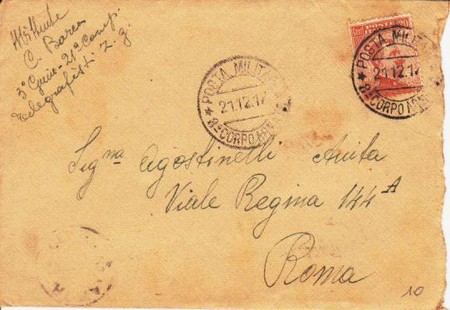 C. Barco
3° Genio - 21ª Comp.
Telegrafisti Z. G.
POSTA MILITARE
21.12.17
8° CORPO
POSTA MILITARE
21.12.17
8° CORPO
Sig.na Agostinelli Anita
Viale Regina 144 A
Roma
10